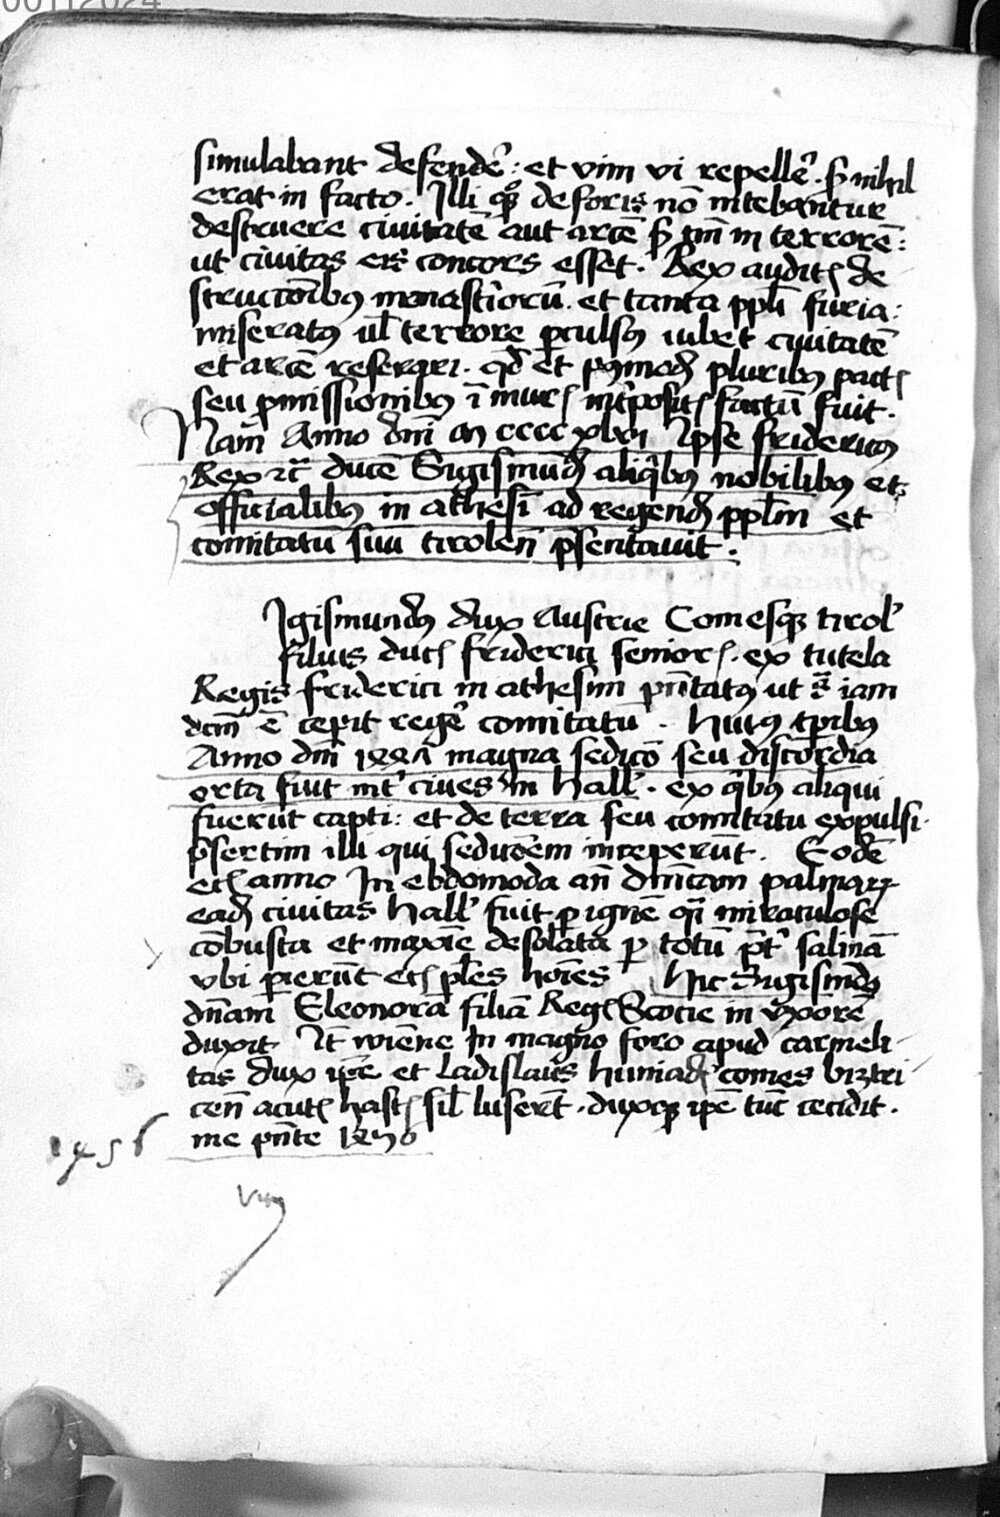 simulabant defendē : et vim vi repellē . s̄ nihil
erat in facto . Illi qꝫ deforis nō nitebantur
destruere ciuitatē aut arcē s̄ tm̄ in terrorē :
ut ciuitas eis concors esset . Rex auditꝭ de
structōnibꝰ monasterioꝝ . et tanta ppl̄i furia :
miseratꝰ ul̄ terrore ꝑculsꝰ iubet ciuitatē
et arcē reserari . qd̄ et pluribꝰ pactꝭ
seu ꝓmissionibꝰ ī murꝭ int̄positꝭ factū fuit .
Nam̄ Anno dn̄i m cccc xlvi Ipse fridericꝰ
Rex ducē Sigismūdū aliq̄bꝰ nobilibꝰ et
officialibꝰ in athesī ad regendū ppl̄m et
comitatum suū tirolen̄ p̄sentauit .
Igismundꝰ dux Austrie Comesqꝫ tirol̓
filius ducꝭ friderici seniorꝭ . ex tutela
Regis friderici in athesim pn̄tatꝰ ut iam
dcm̄ ē cepit regē comitatū . huiꝰ tꝑibꝰ
Anno dn̄i magna sedicō seu discordia
orta fuit int̓ ciues in hall̓ . ex q̄bꝰ aliqui
fuerūt capti : et de terra seu comitatu expulsi .
p̄sertim illi qui sedicōem inceperūt . Eodē
ecꝭ anno In ebdomoda an̄ dn̄icam palmaꝝ
eadē ciuitas hall̓ fuit ꝑ ignē q̄i miraculose
cōbusta et maxīe desolata ꝑ totū p̄t̓ salinā
vbi ꝑierūt ecꝭ pl̄es hoīes hic Sigismūdꝰ
dn̄am Eleonorā filiā Regꝭ Scotie in vxorē
duxit It̄ wiene In magno foro apud carmeli
tas dux ip̄e et Ladislaus huniadꝭ comes biztri
cen̄ acutꝭ hastꝭ sil̄ luserūt . duxqꝫ ip̄e tūc cecidit .
me pn̄te 1456
1456